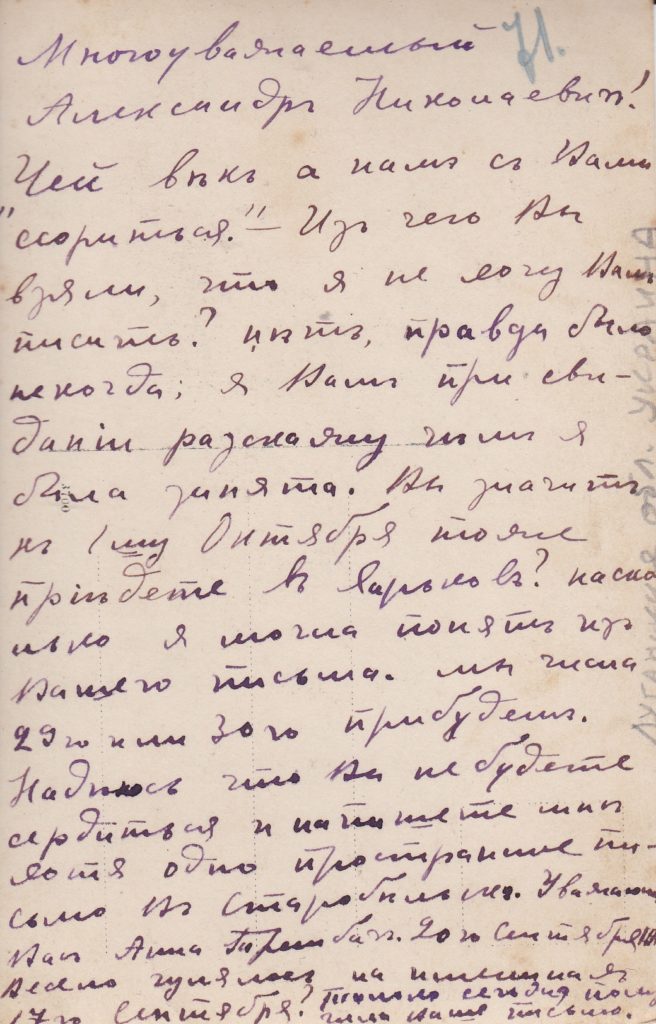 Многоуважаемый 71.
Александръ Николаевичъ!
Чей вѣкъ а намъ съ Вами
"ссориться." — Изъ чего Вы
взяли, что я не хочу Вамъ
писать? нѣтъ, правда было
некогда; я Вамъ при сви-
даніи разскажу чѣмъ я
была занята. Вы значитъ
къ 1му Октября тоже
пріѣдете въ Харьковъ? наско
лько я могла понять изъ
Вашего письма. мы числа
29го или 30го прибудемъ.
Надѣюсь что Вы не будете
сердиться и напишете мнѣ
хотя одно пространное пи-
сьмо въ Старобѣльскъ. Уважающая
Васъ Анна 20го Сентября
Весело гулялось на именинахъ
17го Сентября? только сегодня полу
чила Ваше письмо.
ЛУГАНСКАЯ ОБЛ. УКРАИНА